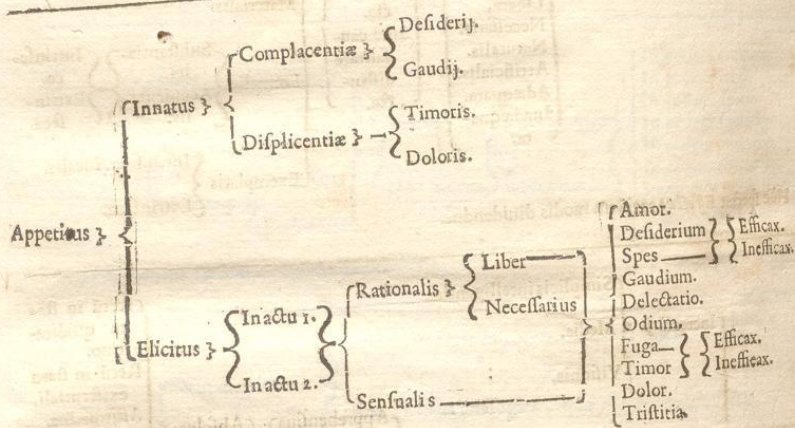 Appetitus
Innatus
Complacentiæ
Deſiderij.
Gaudij.
Diſplicentiæ
Timoris.
Doloris.
Elicitus
In actu 1.
In actu 2.
Rationalis
Liber
Neceſſarius
Senſualis
Amor.
Deſiderium
Spes
Efficax.
Inefficax.
Gaudium.
Delectatio.
Odium.
Fuga
Timor
Efficax.
Inefficax.
Dolor.
Triſtitia.